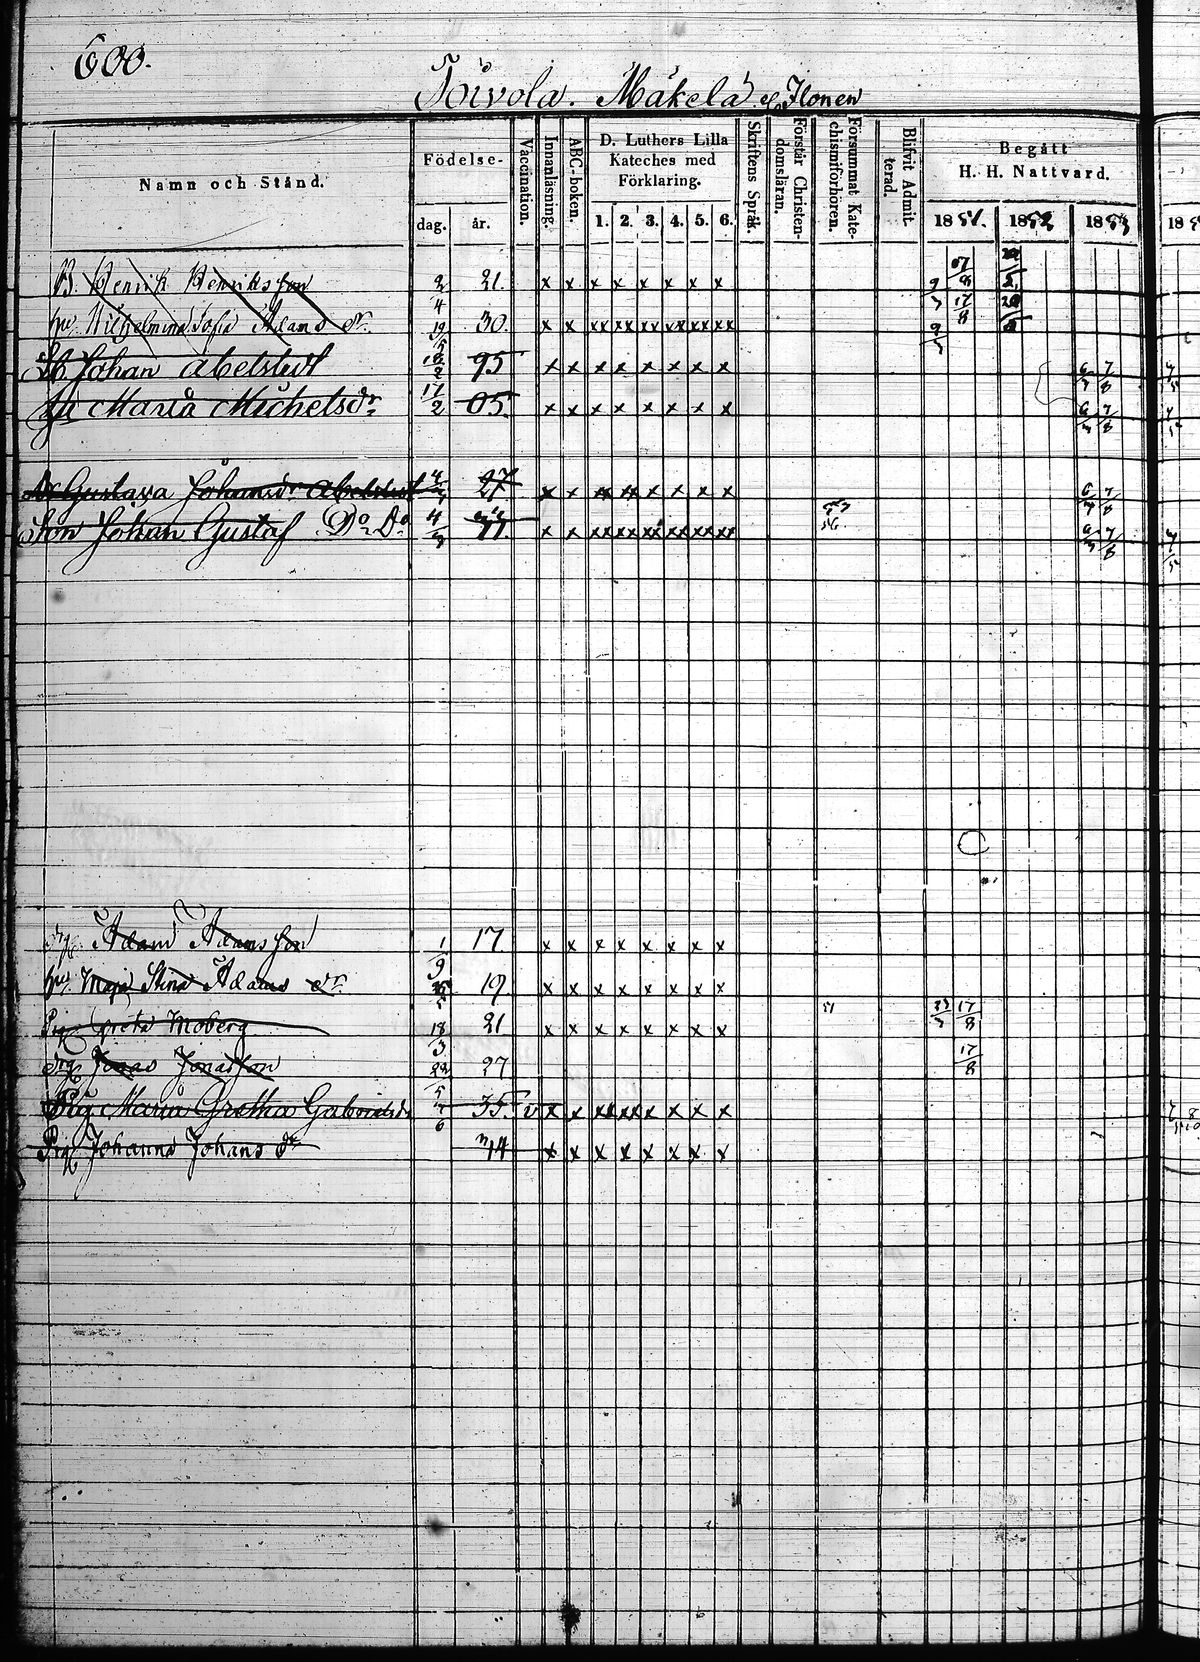 600.
Toivola. Mäkelä el. Ilonen
Namn och Stånd.
Födelse-
dag. år.
Vaccination.
Innanläsning.
ABC-boken.
D. Luthers Lilla
Kateches med
Förklaring.
1. 2. 3. 4. 5. 6.
Skriftens Språk.
Förstår Christen-
domsläran.
Försummat Kate-
chismiförhören.
Blifvit Admit-
terad.
Begått
H. H. Nattvard.
1851. 1852 1853
B. Henrik Henriksson 2/4 21. x x x x x x x x
hu. Wilhelmina Sofia Adams dr. 19 30. x x xx xx xx xx xx xx
Johan Abelstedt 18/2 95 x x x x x x x x 7/8
Maria Michelsdr. 17/2 05. x x x x x x x x 7/8
Dr Gustava Johansdr Abelstedt 27. x x x x x x x x 7/8
Son Johan Gustaf Do Do x x xx xx xx xx xx xx 7/8
drg. Adam Adamsson 1/9 17. x x x x x x x x
hu. Maja Stina Adams dr. 19. x x x x x x x x
Pig. Greta Moberg 18/3 21 x x x x x x x x 51 17/8
drg Jonas Jonasson 22/5 27 17/8
Pig Maria Gretha Gabrielsdr 35. v x x x x x x x x
Pig Johanna Johans dr 14 x x x x x x x x